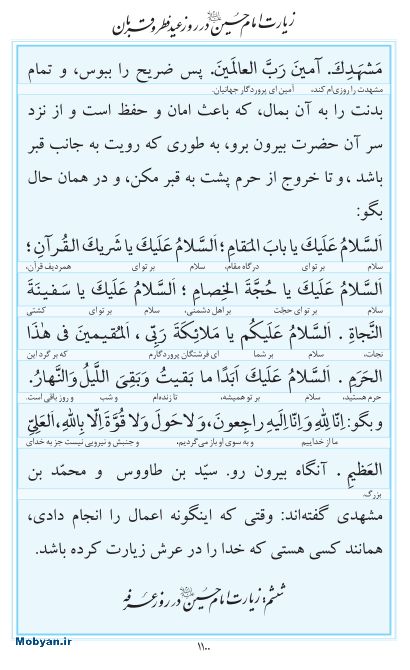 زیارت امام حسین علیه السلام در روز عید فطر و قربان
مَشهَدِكَ. آمینَ رَبَّ العالَمینَ. پس ضریح را ببوس، و تمام
مشهدت را روزی‌ام کند، آمین ای پروردگار جهانیان.
بدنت را به آن بمال، که باعث امان و حفظ است و از نزد
سر آن حضرت بیرون برو، به طوری که رویت به جانب قبر
باشد ،و تا خروج از حرم پشت به قبر مکن، و در همان حال
بگو:
اَلسَّلامُ عَلَیكَ یا بابَ المَقامِ؛ اَلسَّلامُ عَلَیكَ یا شَریكَ القُرآنِ؛
سلام بر تو ای درگاه مقام، سلام بر تو ای همردیف قرآن،
اَلسَّلامُ عَلَیكَ یا حُجَّةَ الخِصامِ؛ اَلسَّلامُ عَلَیكَ یا سَفینَةَ
سلام بر تو ای حجّت بر اهل دشمنی، سلام بر تو ای کشتی
النَّجاةِ. اَلسَّلامُ عَلَیكُم یا مَلائِكَةَ رَبّی، اَلمُقیمینَ فی هٰذَا
نجات، سلام بر شما ای فرشتگان پروردگارم که بر گرد این
الحَرَمِ. اَلسَّلامُ عَلَیكَ اَبَدًا ما بَقیتُ وَبَقِیَ اللَّیلُ وَالنَّهارُ.
حرم هستید، سلام بر تو همیشه، تا زنده‌ام و شب و روز باقی است.
و بگو: اِنّا لِلّٰهِ وَاِنّا اِلَیهِ راجِعونَ، وَلا حَولَ وَلا قُوَّةَ اِلّا بِاللّٰهِ، العَلِیِّ
ما از خداییم و به سوی او باز می‌گردیم، و جنبش و نیرویی نیست جز به خدای
العَظیمِ. آنگاه بیرون رو. سیّد بن طاووس و محمّد بن
بزرگ.
مشهدی گفته‌اند: وقتی که اینگونه اعمال را انجام دادی،
همانند کسی هستی که خدا را در عرش زیارت کرده باشد.
ششم: زیارت امام حسین علیه السلام در روز عرفه
Mobyan.ir
۱۱۰۰